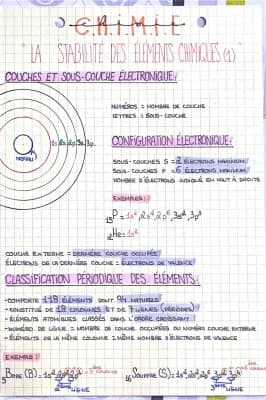 C.H.I.M.I.E
"LA STABILITÉ DES ÉLÉMENTS CHIMIQUES (1)"
COUCHES ET SOUS-COUCHE ÉLECTRONIQUE:
1s 2s 2p 3s 3p
NOYAU
NUMÉROS = NOMBRE DE COUCHE
LETTRES = SOUS-COUCHE
CONFIGURATION ÉLECTRONIQUE:
SOUS-COUCHES S = 2 ÉLECTRONS MAXIMUM
SOUS-COUCHES P = 6 ÉLECTRONS MAXIMUM
NOMBRE D'ÉLECTRONS INDIQUÉ EN HAUT À DROITE
EXEMPLE:
15P = 1s², 2s² 2p⁶, 3s² 3p³
2He = 1s²
COUCHE EXTERNE = DERNIÈRE COUCHE OCCUPÉE
ÉLECTRONS DE LA DERNIÈRE COUCHE = ÉLECTRONS DE VALENCE
CLASSIFICATION PÉRIODIQUE DES ÉLÉMENTS:
- COMPORTE 118 ÉLÉMENTS DONT 94 NATURELS
- CONSTITUÉ DE 18 COLONNES ET DE 7 LIGNES (PÉRIODES)
- ÉLÉMENTS ATOMIQUES CLASSÉS DANS L'ORDRE CROISSANT
- NUMÉRO DE LIGNE = NOMBRE DE COUCHE OCCUPÉES OU NUMÉRO COUCHE EXTERNE
- ÉLÉMENTS DE LA MÊME COLONNE = MÊME NOMBRE D'ÉLECTRONS DE VALENCE
EXEMPLE:
5 BORE (B) = 1s² 2s² 2p¹
16 SOUFFRE (S) = 1s² 2s² 2p⁶ 3s² 3p⁴
LIGNE
LIGNE